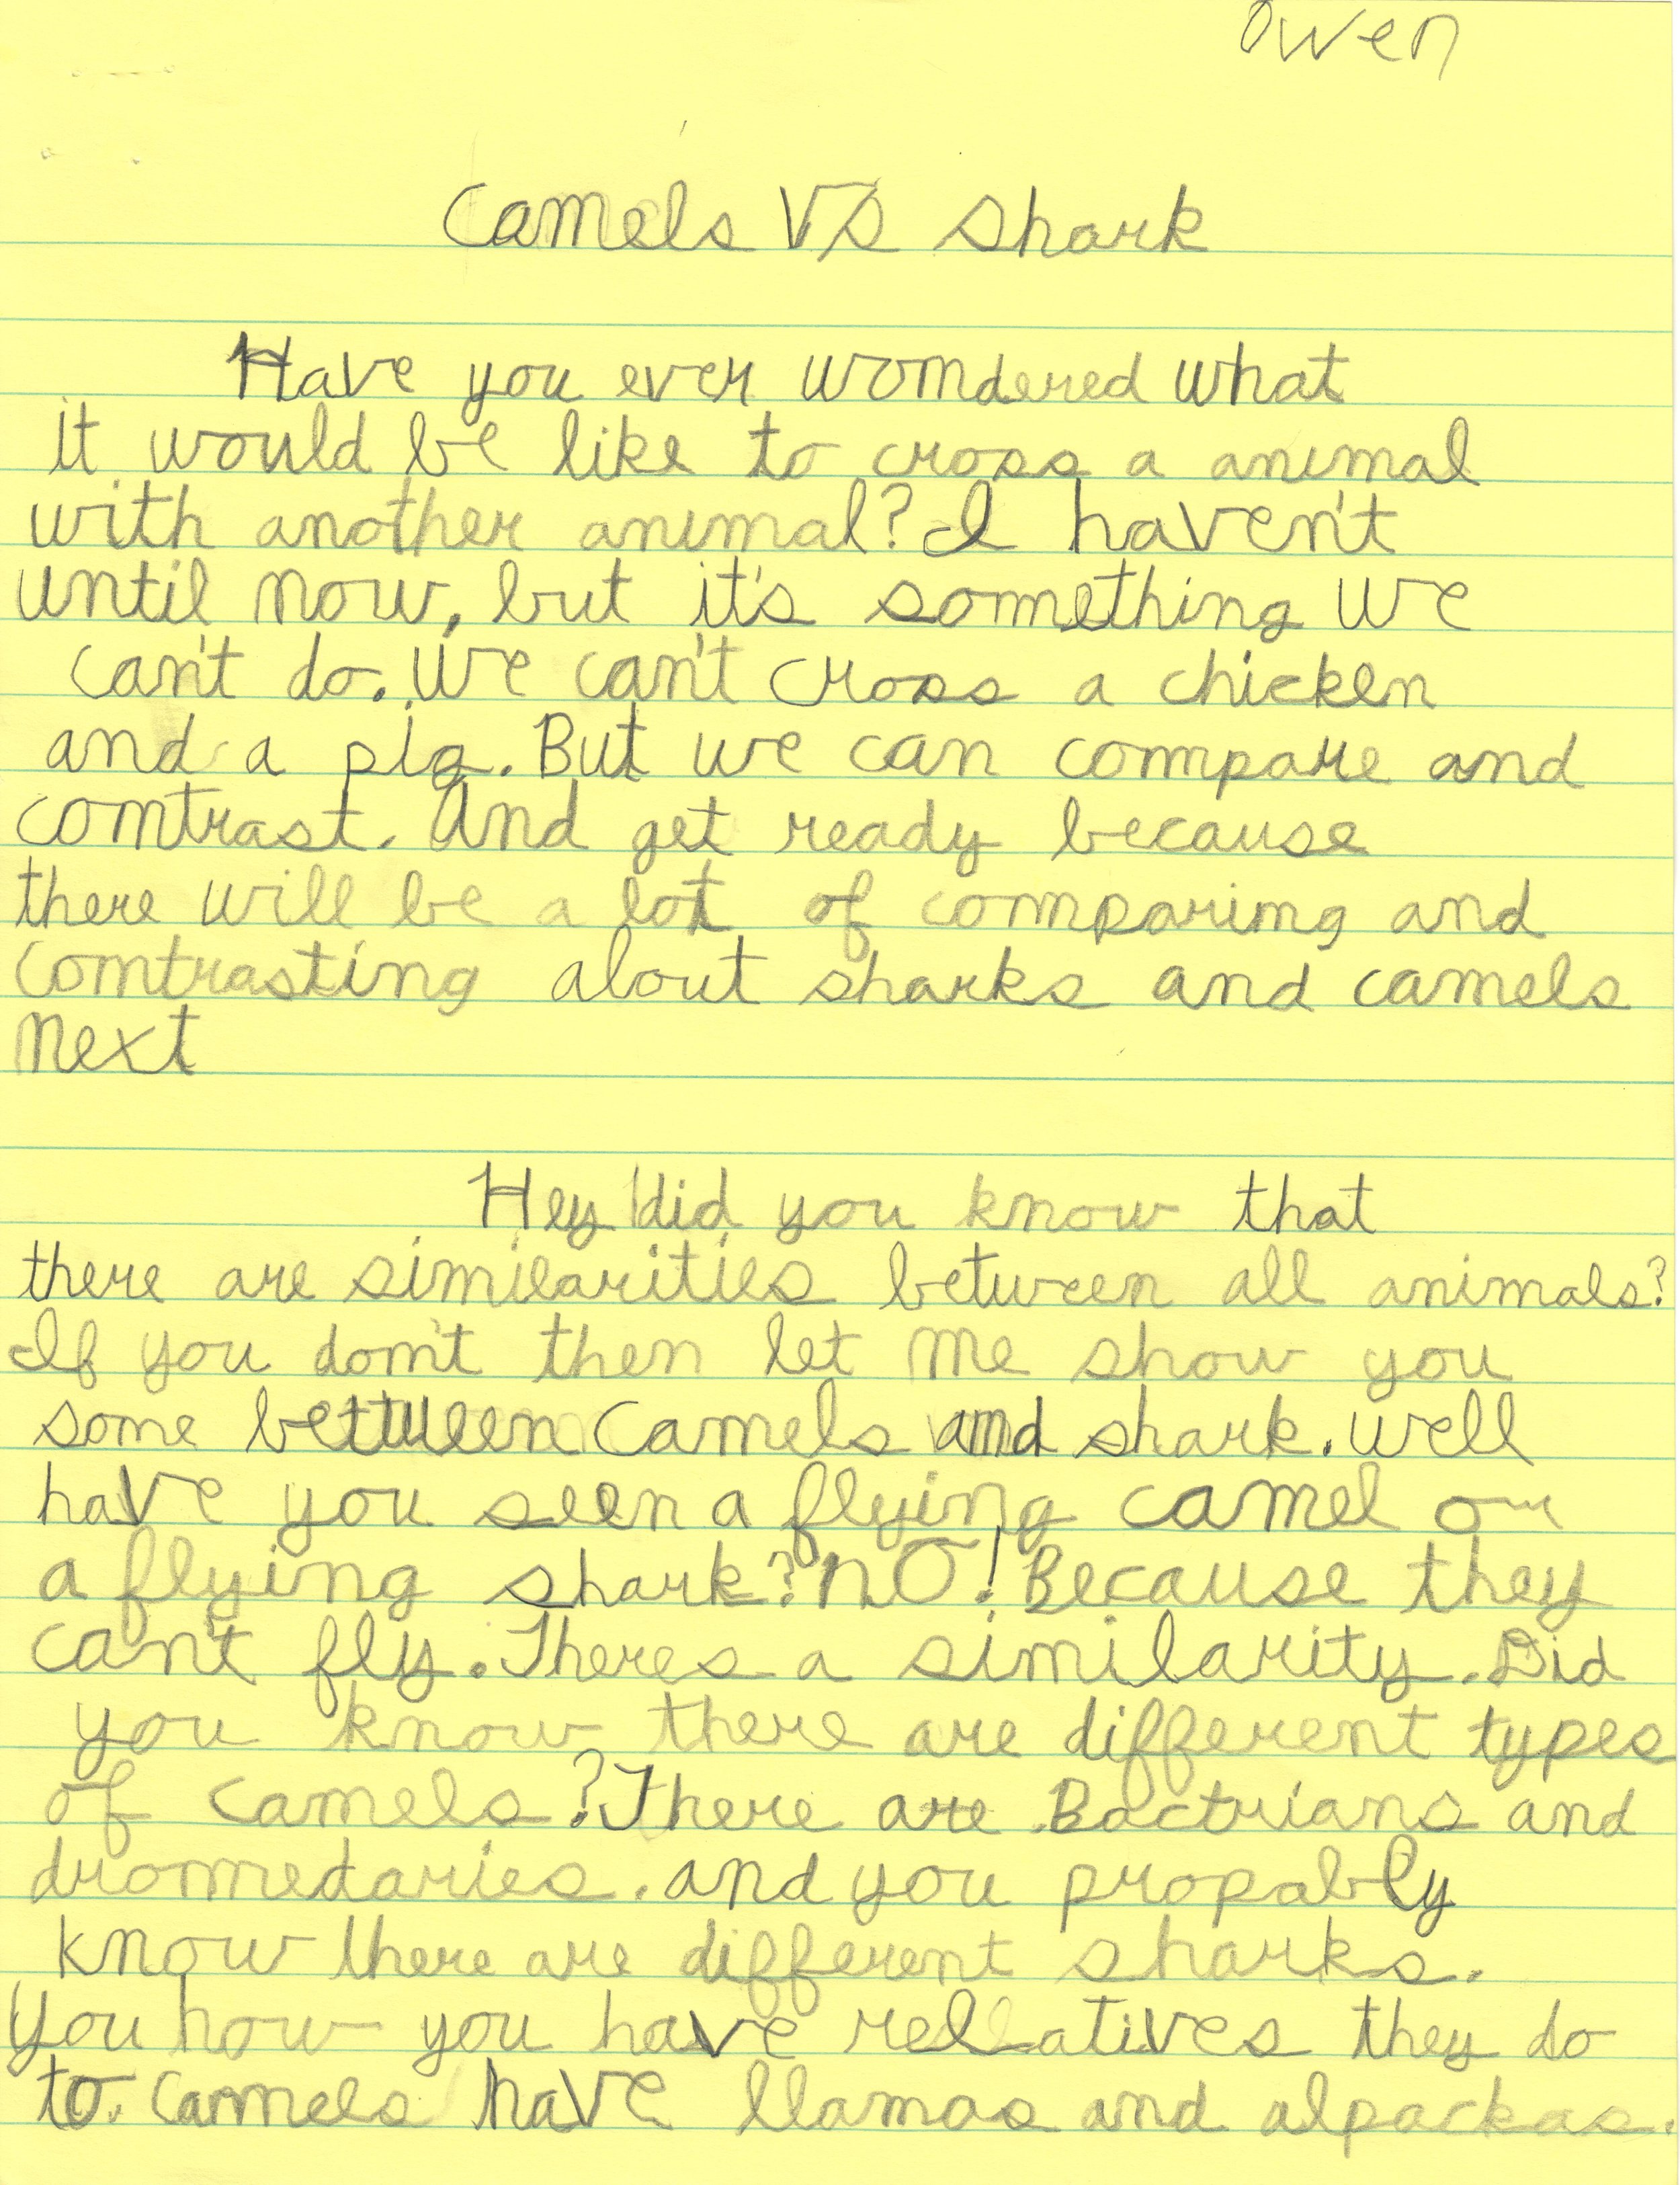 Owen
Camels VS Shark
Have you ever wondered what
it would be like to cross a animal
with another animal? I haven't
until now, but it's something we
can't do. We can't cross a chicken
and a pig. But we can compare and
contrast. And get ready because
there will be a lot of comparing and
contrasting about sharks and camels
next
Hey did you know that
there are similarities between all animals?
If you don't then let me show you
some between Camels and shark. Well
have you seen a flying camel or
a flying shark? NO! Because they
can't fly. Theres a similarity. Did
you know there are different types
of camels? There are Bactrians and
dromedaries. and you propably
know there are different sharks.
You how you have rellatives they do
to. Camels have llamas and alpackas.